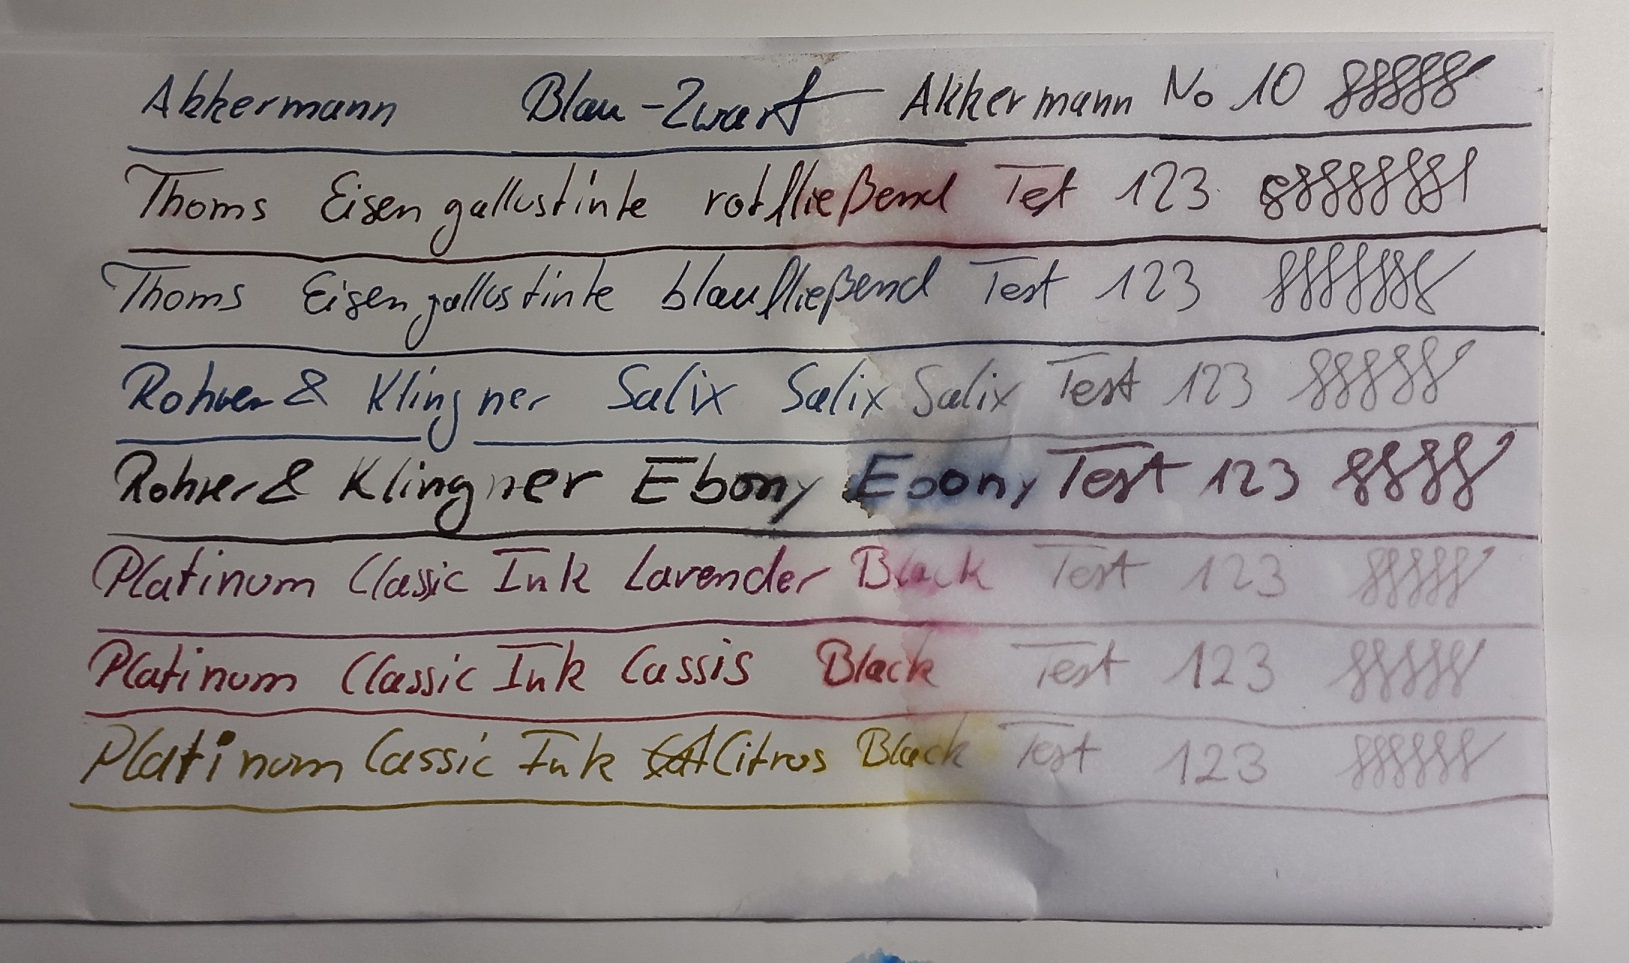 Akkermann Blau-Zwart Akkermann No 10
Thoms Eisengallustinte rotfließend Tet 123
Thoms Eisengallustinte blaufließend Test 123
Rohrer & Klingner Salix Salix Salix Test 123
Rohrer & Klingner Ebony Ebony Test 123
Platinum Classic Ink Lavender Black Test 123
Platinum Classic Ink Cassis Black Test 123
Platinum Classic Ink Citrus Black Test 123